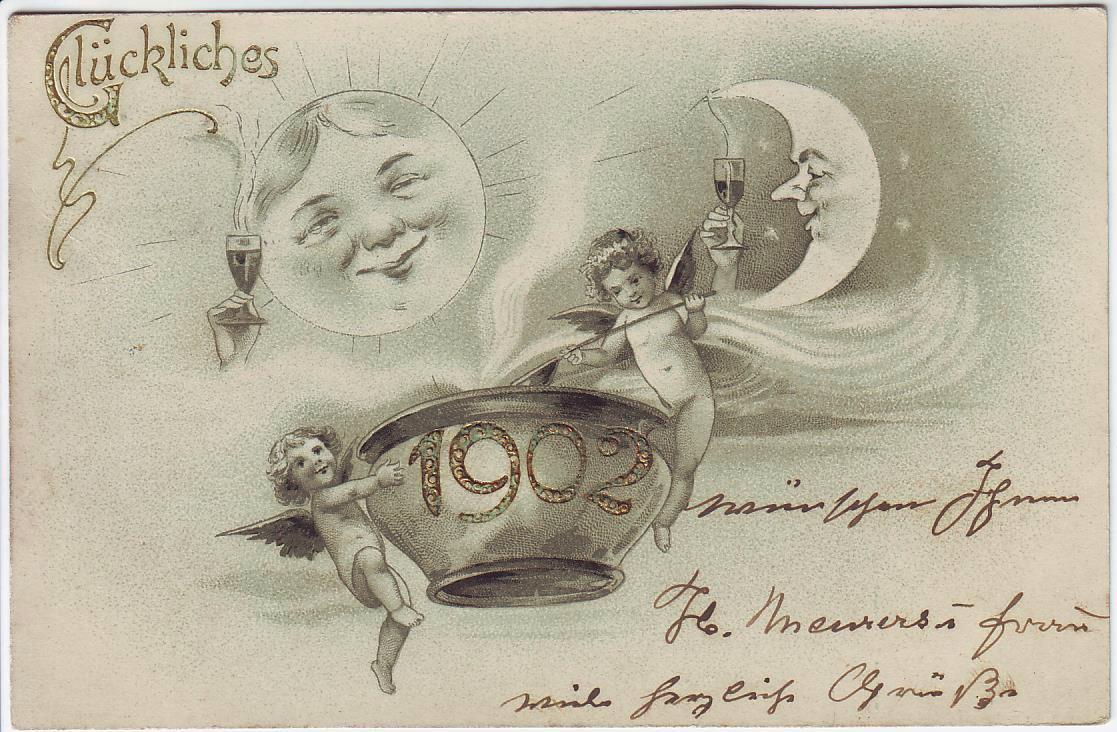 Glückliches
1902
wünschen Ihnen
Th. Meurers u frau
viele herzliche Grüße